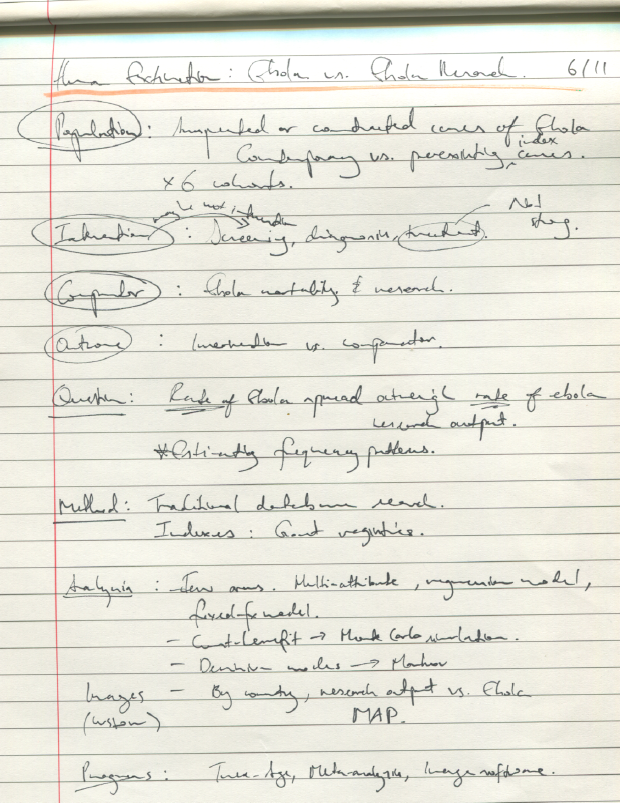 : Ebola vs. Ebola Research. 6/11
Population : suspected or cases of Ebola
Contemporary vs. index cases.
x 6 cohorts.
maybe not
Intervention : Screening, diagnosis, treatment.
Comparator : Ebola mortality & research.
Outcome : Intervention vs. comparator.
Question : Rate of Ebola spread outweigh rate of ebola
research output.
# Estimating frequency patterns.
Method : Traditional database search.
Indexes : Govt registries.
Analysis : - arms. Multi-attribute, regression model,
model.
- Cost-benefit → Monte Carlo simulation.
- Decision → Markov
Images - By country, research output vs. Ebola
MAP.
Programs : Tree-Age, Meta-analysis, Image software.